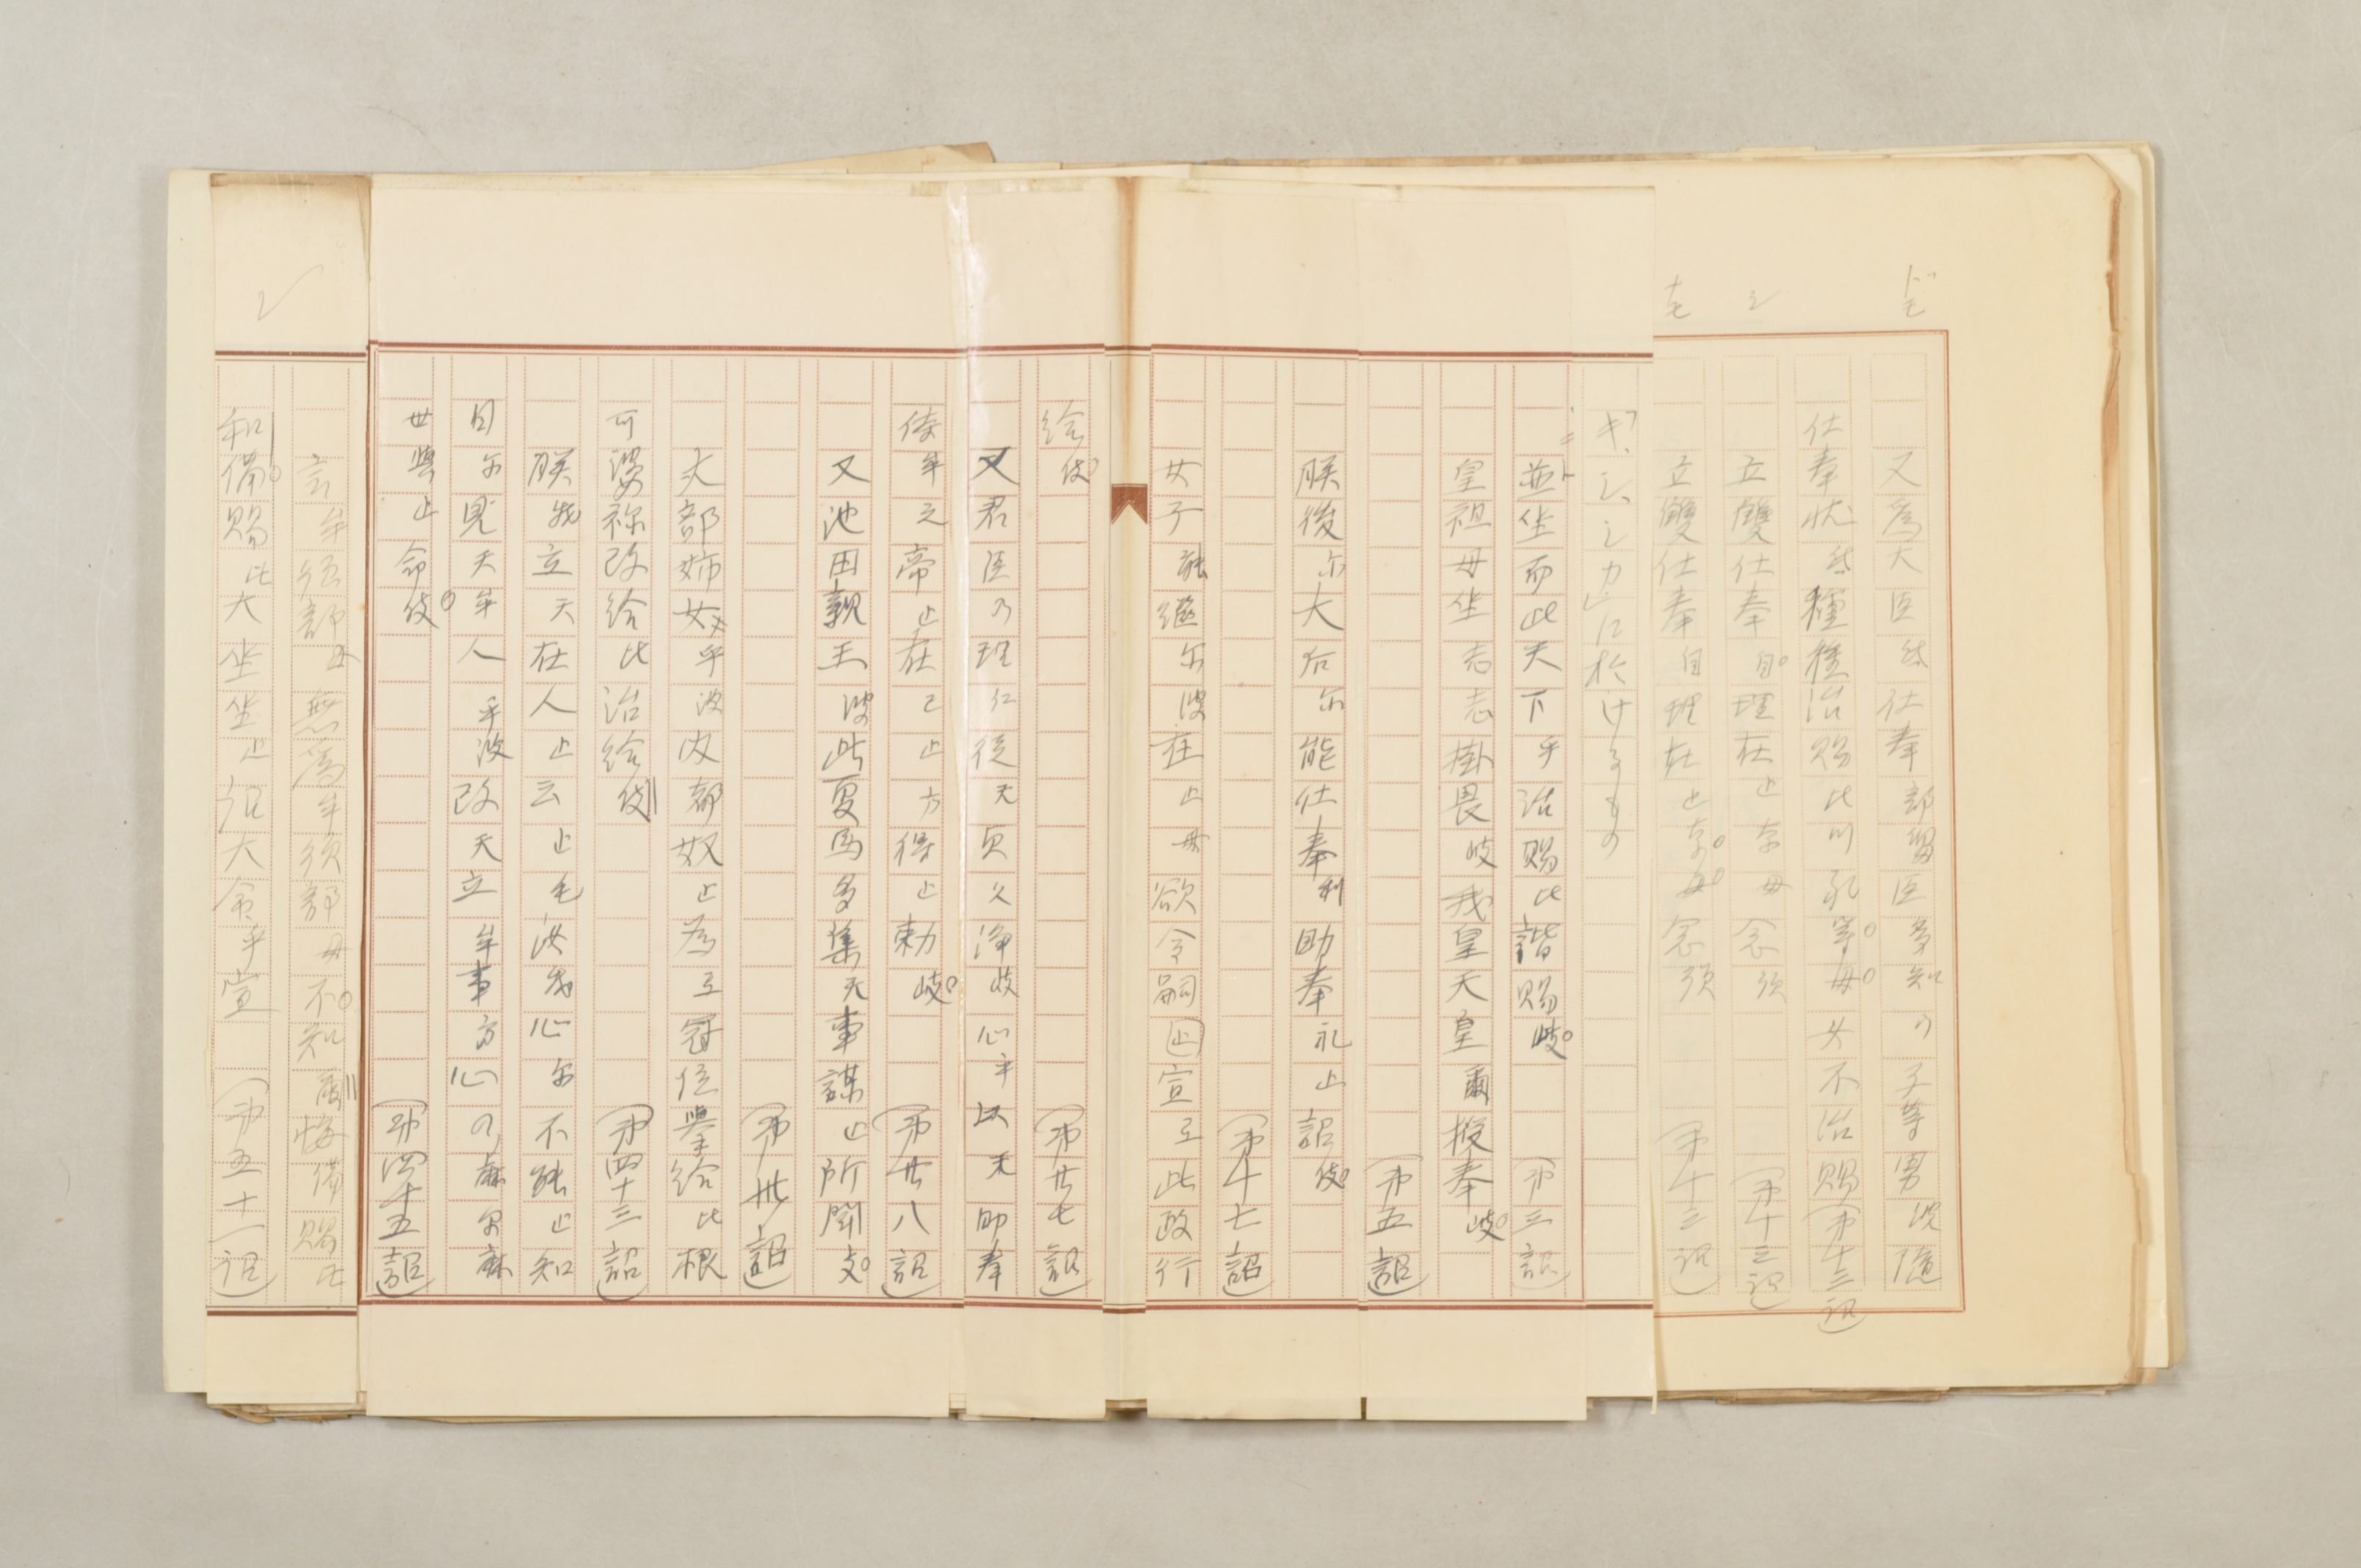 ドモ
シ
モ
又爲大臣弖仕奉部留臣多知乃子等男波隨
仕奉状弖種種治賜比川礼等母女不治賜(第十三詔)
立雙仕奉自理在止奈母念須(第十三詔)
立雙仕奉自理在止奈母念須(第十三詔)
キ、シ、シカに於けるもの
並坐而此天下乎治賜比諧賜岐(第三詔)
皇祖母坐志志掛畏岐我皇天皇爾授奉岐
(第五詔)
朕後尓大后尓能仕奉利助奉礼止詔伎
(第十七詔)
女子能継尓波在止母欲令嗣止宣弖此政行
給伎(第廿七詔)
又君臣乃理仁従天貞久浄岐心乎以天助奉
侍牟之帝止在己止方得止勅岐(第廿八詔)
又池田親王波此夏馬多集天事謀止所聞支
(第卅詔)
丈部姉女乎波内都奴止為弖冠位挙給比根
可婆祢改給比治給伎(第四十三詔)
朕我立天在人止云止毛汝我心尓不能止知
目尓見天牟人乎波改天立牟事方心乃麻尓麻
世與止命伎(第四十五詔)
言牟須部母無為牟須部母不知尓悔備賜比
和備賜比大坐坐止詔大命乎宣(第五十一詔)
シ